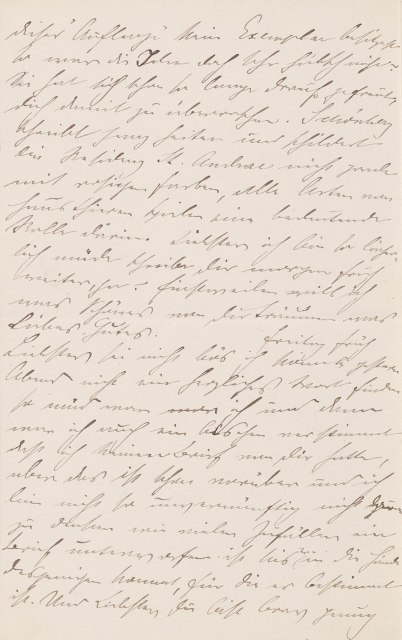 dieser Auflage kein Exemplar besitzest
so war die Idee doch sehr hübsch
Sie hat sich schon so lange darauf gefreut,
dich damit zu überraschen. Schönberg
schreibt ganz heiter und schildert
die St. Andrae nicht grade
mit rosigen Farben, alle Arten von
Hausthieren spielen eine bedeutende
Rolle darin. Liebster ich bin so
lich müde schreibe dir morgen früh
weiter, ja. Einstweilen will ich
was schönes von dir träumen was
Liebes Gutes.
Freitag früh
Liebster sei nicht bös ich konnte gestern
Abend nicht ein herzliches Wort finden
so müd war ich und dann
war ich auch ein bischen verstimmt
daß ich keinen Brief von dir hatte,
aber das ist schon vorüber und ich
bin nicht so unvernünftig nicht
zu denken wie vielen Zufällen ein
Brief unterworfen ist bis er in die Hände
desjenigen kommt, für die er bestimmt
ist. Und Liebster du bist brav genug